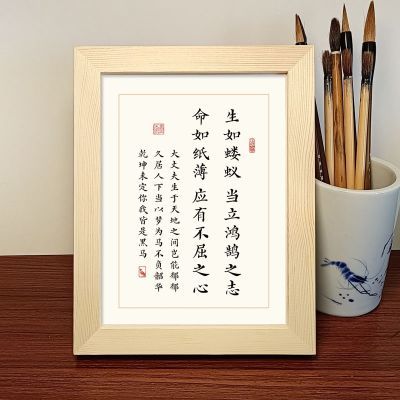 生如蝼蚁 当立鸿鹄之志
命如纸薄 应有不屈之心
大丈夫生于天地之间岂能郁郁
久居人下当以梦为马不负韶华
乾坤未定你我皆是黑马